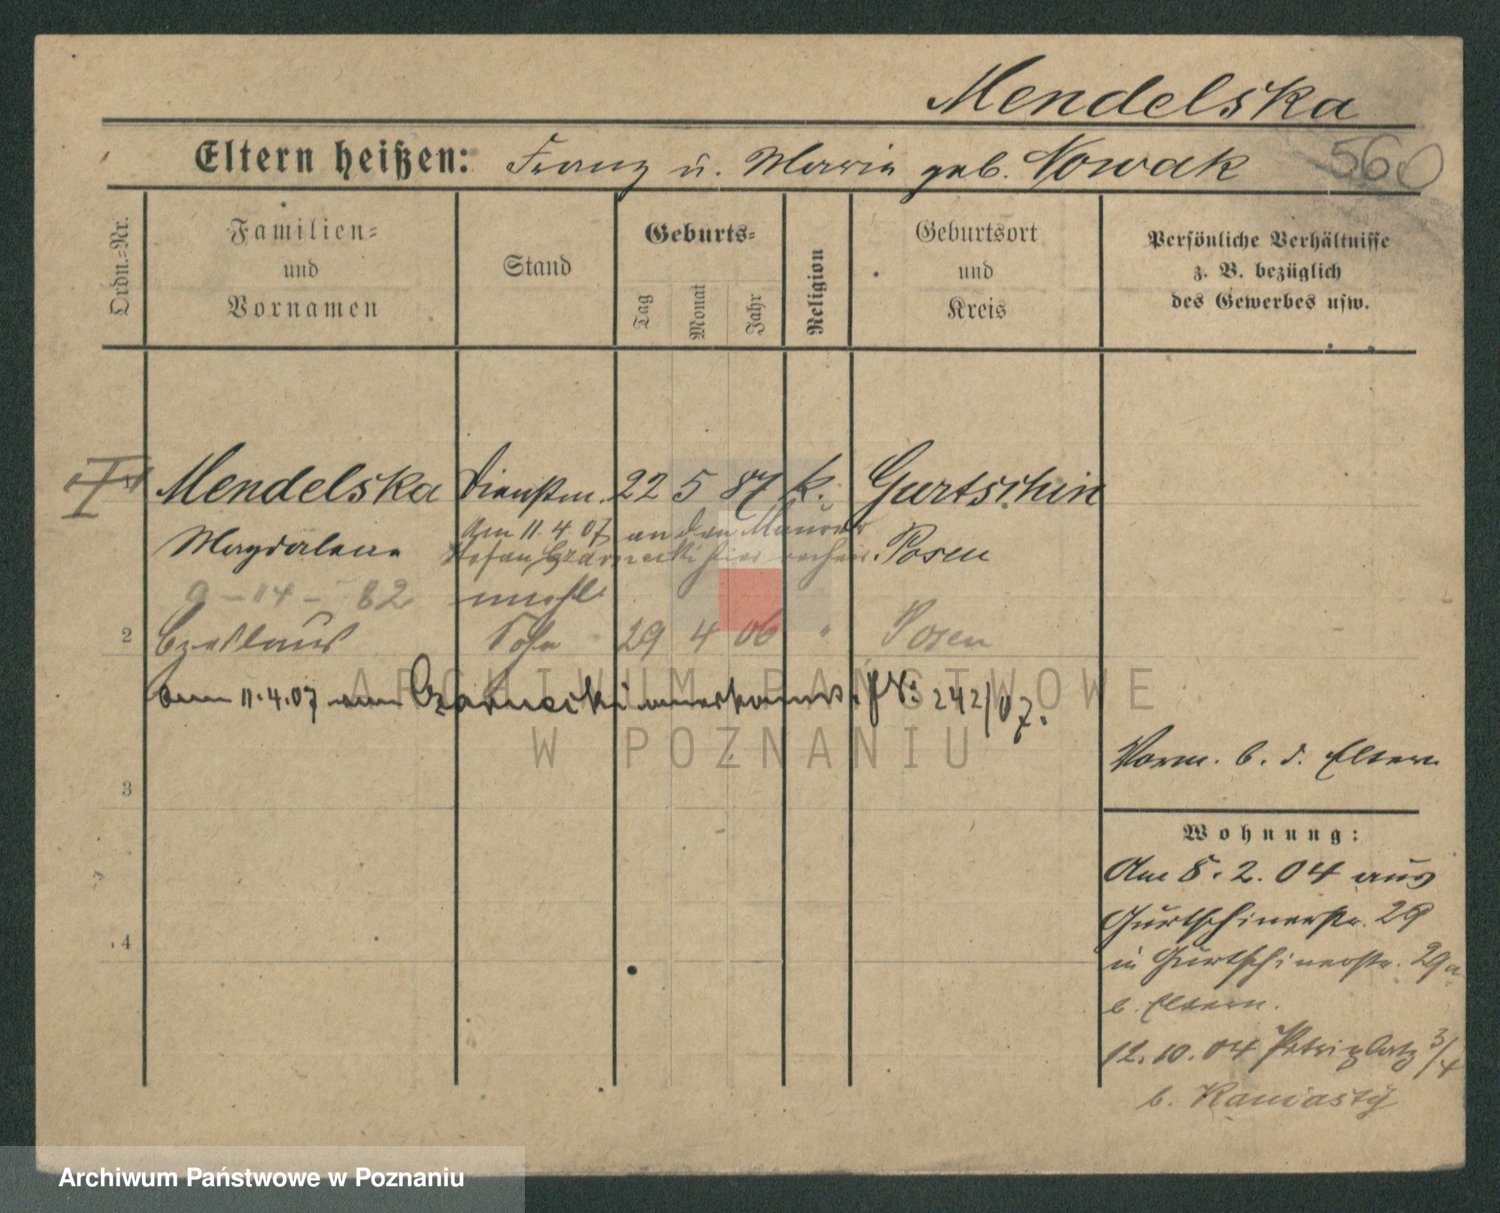 Mendelska
Eltern heißen: Franz u. Marie geb. Nowak
560
Ordn.-Nr.
Familien=
und
Vornamen
Stand
Geburts=
Tag
Monat
Jahr
Religion
Geburtsort
und
Kreis
Persönliche Verhältnisse
z. B. bezüglich
des Gewerbes usw.
Mendelska Dienstm. 22 5 87 k. Gurtschin
Am 11.4.07 an den Maurer
Magdalena Stefan Czarnecki hier verhei. Posen
9-14-82
2 Czeslaus Sohn 29 4 06 " Posen
am 11.4.07 vom Czarnecki anerkannt. Nr. 242/07.
3
4
Vorm. b. d. Eltern
Wohnung:
Am 8.2.04 aus
Gurtschinerstr. 29
in Gurtschinerstr. 29a
b. Eltern.
12.10.04 Petriplatz 3/4
b. Kaniasty
ARCHIWUM PAŃSTWOWE
W POZNANIU
Archiwum Państwowe w Poznaniu